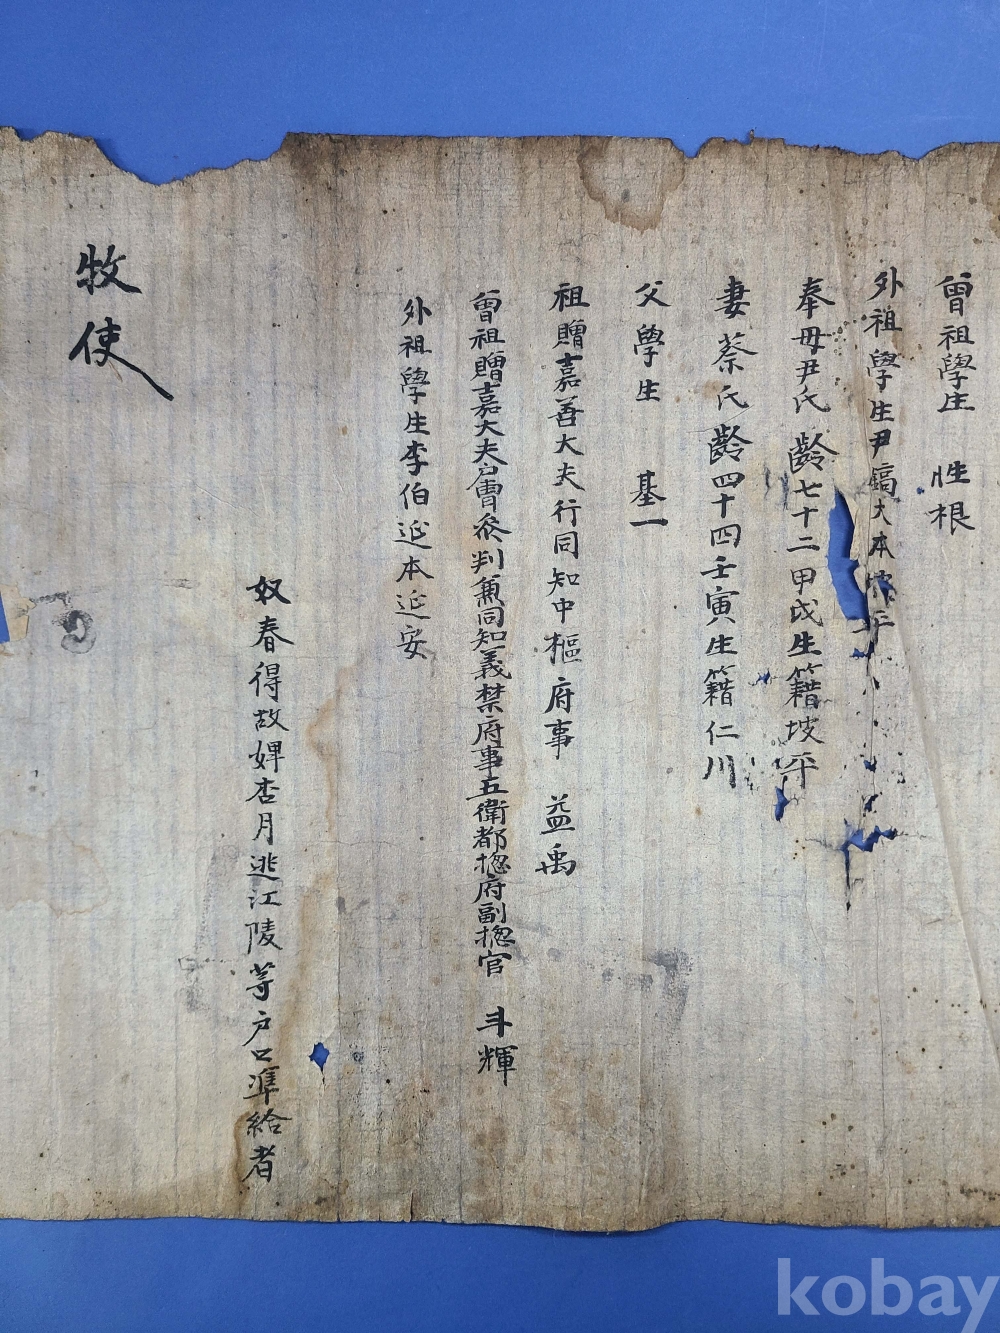 曾祖學生 性根
外祖學生尹鎬大本坡平
奉母尹氏齡七十二甲戌生籍坡平
妻蔡氏齡四十四壬寅生籍仁川
父學生 基一
祖贈嘉善大夫行同知中樞府事 益禹
曾祖贈嘉大夫戶曹參判兼同知義禁府事五衛都摠府副摠官 斗輝
外祖學生李伯延本延安
奴春得故婢杏月逃江陵等戶口準給者
牧使
kobay